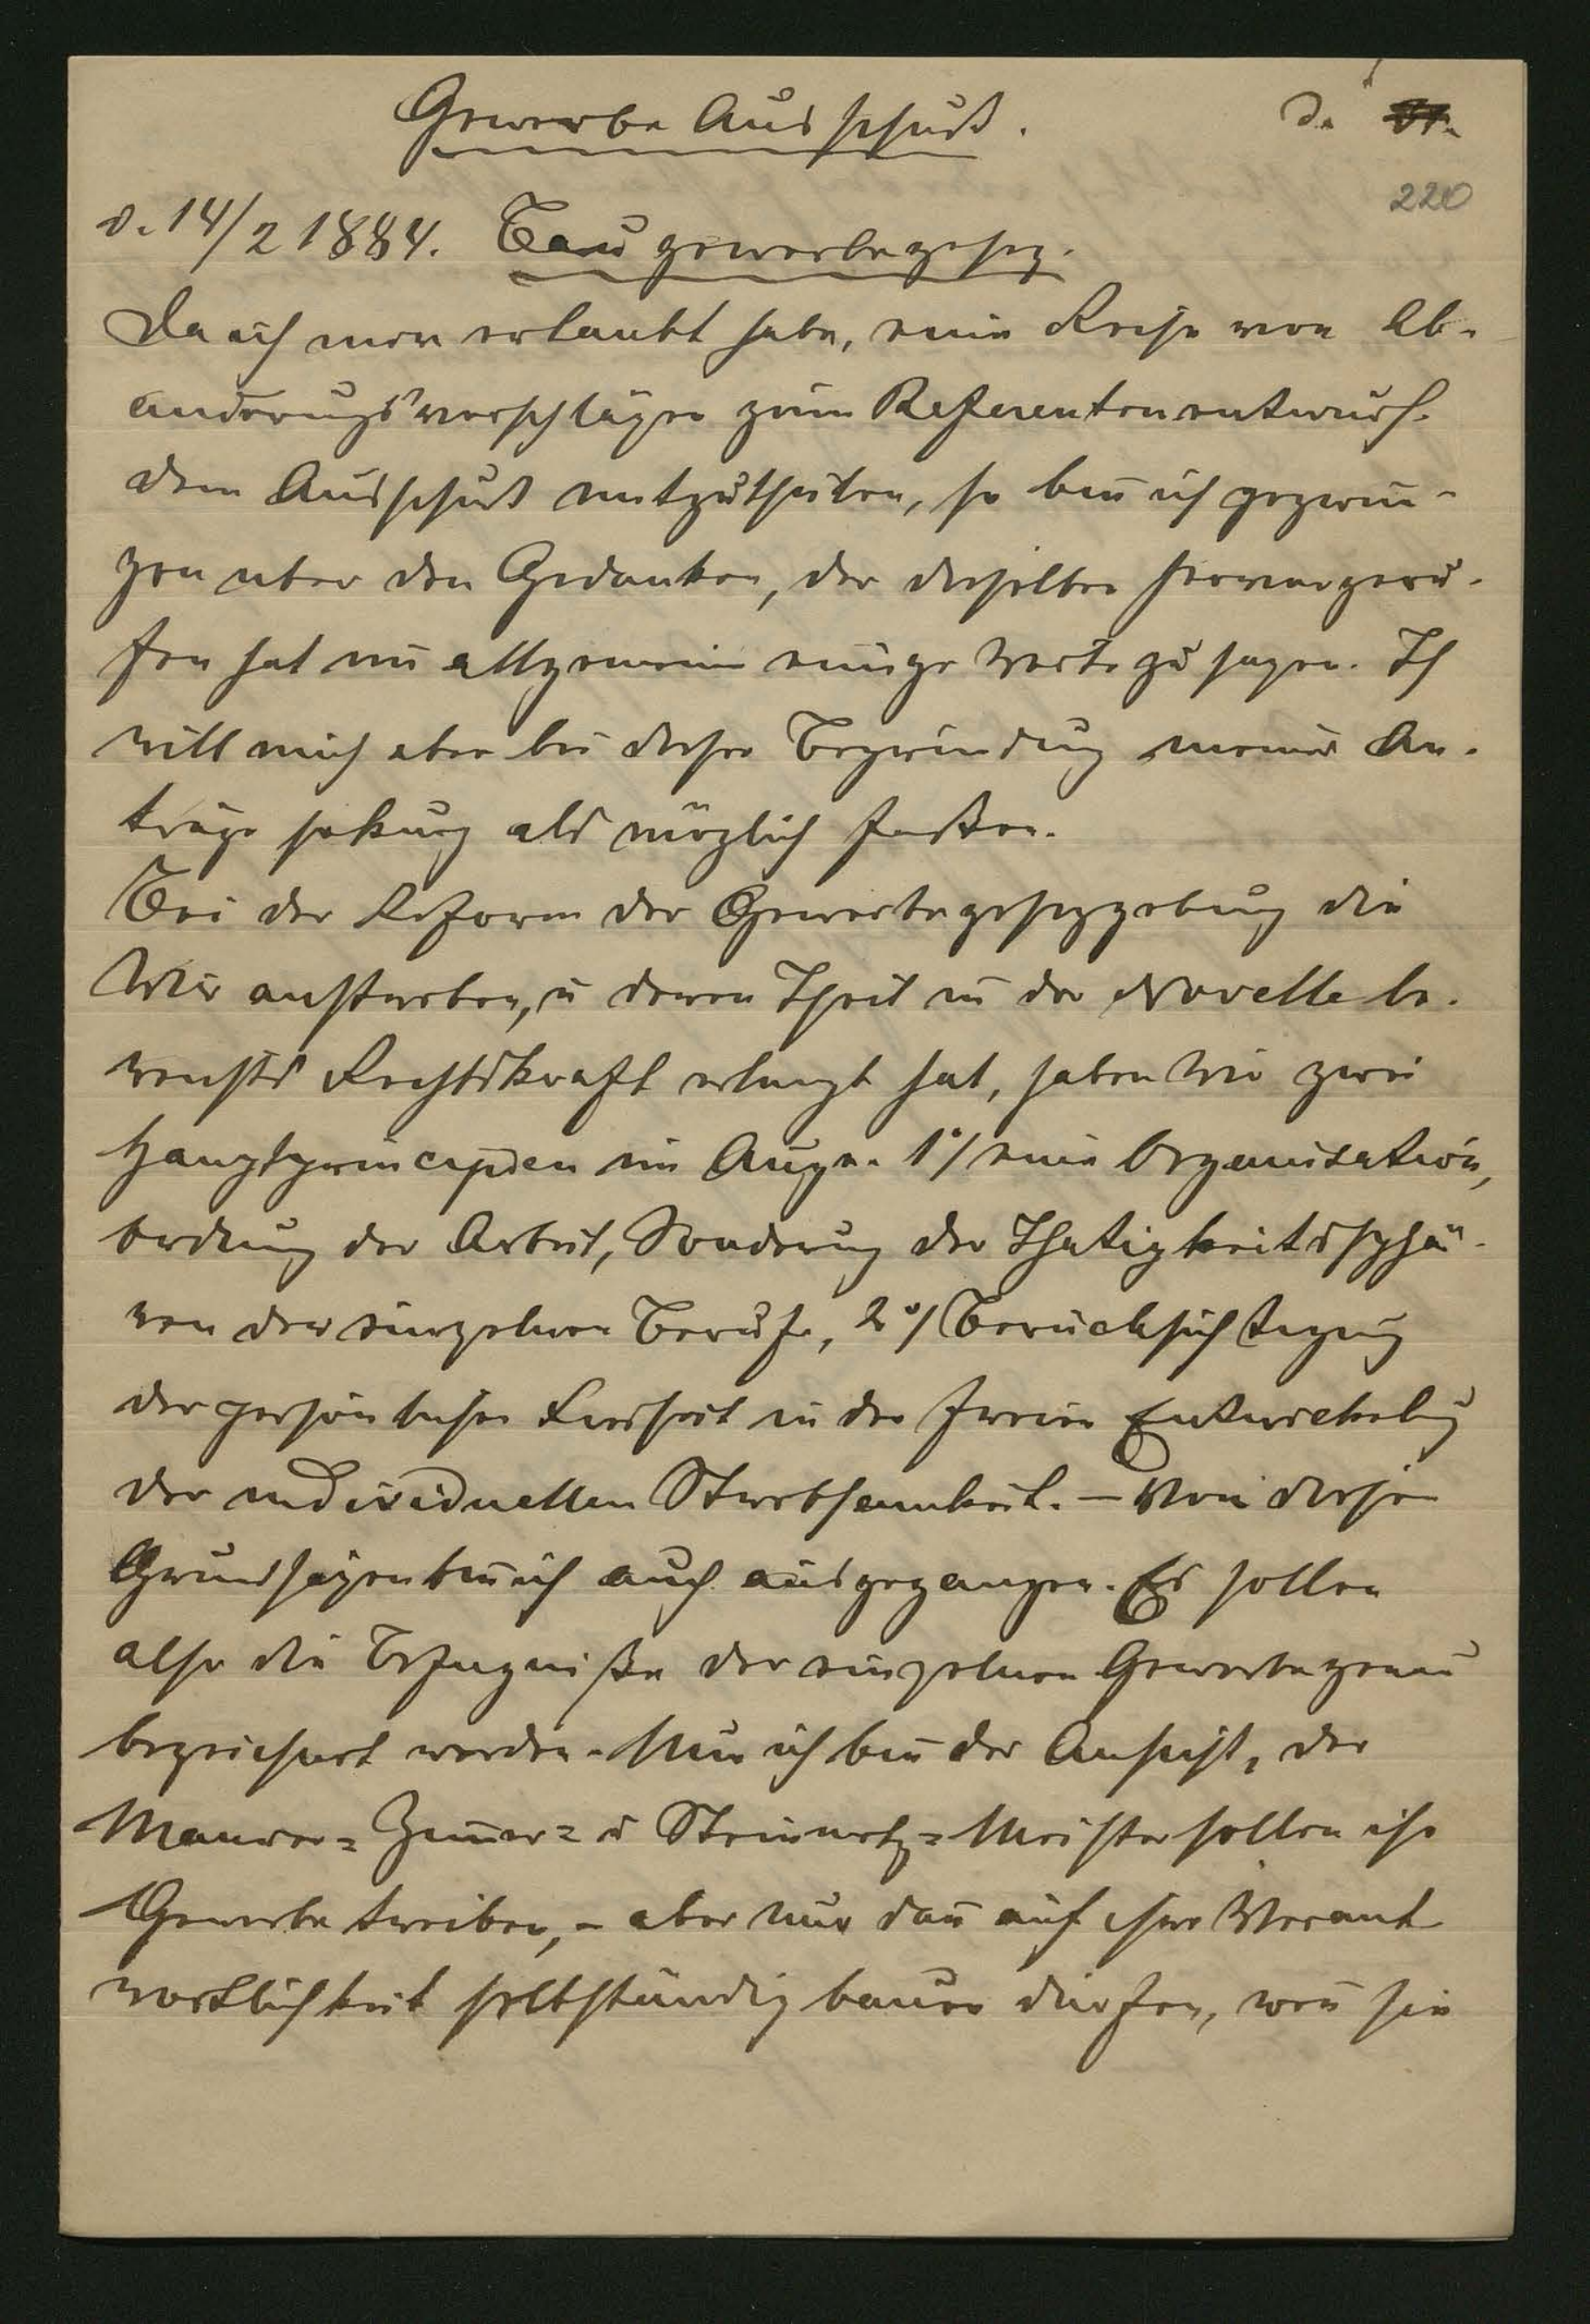 Gewerbe Ausschuß.
D.
220
d. 14/2 1884. Baugewerbegesez.
Da ich mir erlaubt habe, eine Reihe von Ab-
änderungsvorschlägen zum Referentenentwurf
dem Ausschuß mitzutheilen, so bin ich gezwun-
gen über den Gedanken, der dieselben hervorgeru-
fen hat im allgemein einige Worte zu sagen. Ich
will mich aber bei dieser Begründung meiner An-
träge so kurz als möglich faßen.
Bei der Reform der Gewerbegesezgebung die
Wir anstreben, u deren Theil in der Novelle be-
reits Rechtskraft erlangt hat, haben Wir zwei
Hauptprincipien im Auge. 1°/ eine Organisation,
Ordnung der Arbeit, Sonderung der Thätigkeitssphä-
ren der einzelnen Berufe, 2°/ Berücksichtigung
der persönlichen Freiheit in der freien Entwickelung
der individuellen Strebsamkeit. – Von diesen
Grundsäzen bin ich auch ausgegangen. Es sollen
also die Befugniße der einzelnen Gewerbe genau
bezeichnet werden. Nun ich bin der Ansicht, der
Maurer= Zimer= u Steinmetz=Meister sollen ihr
Gewerbe treiben, – aber nur dan auf ihre Verant
wortlichkeit selbständig bauen dürfen, wen sie